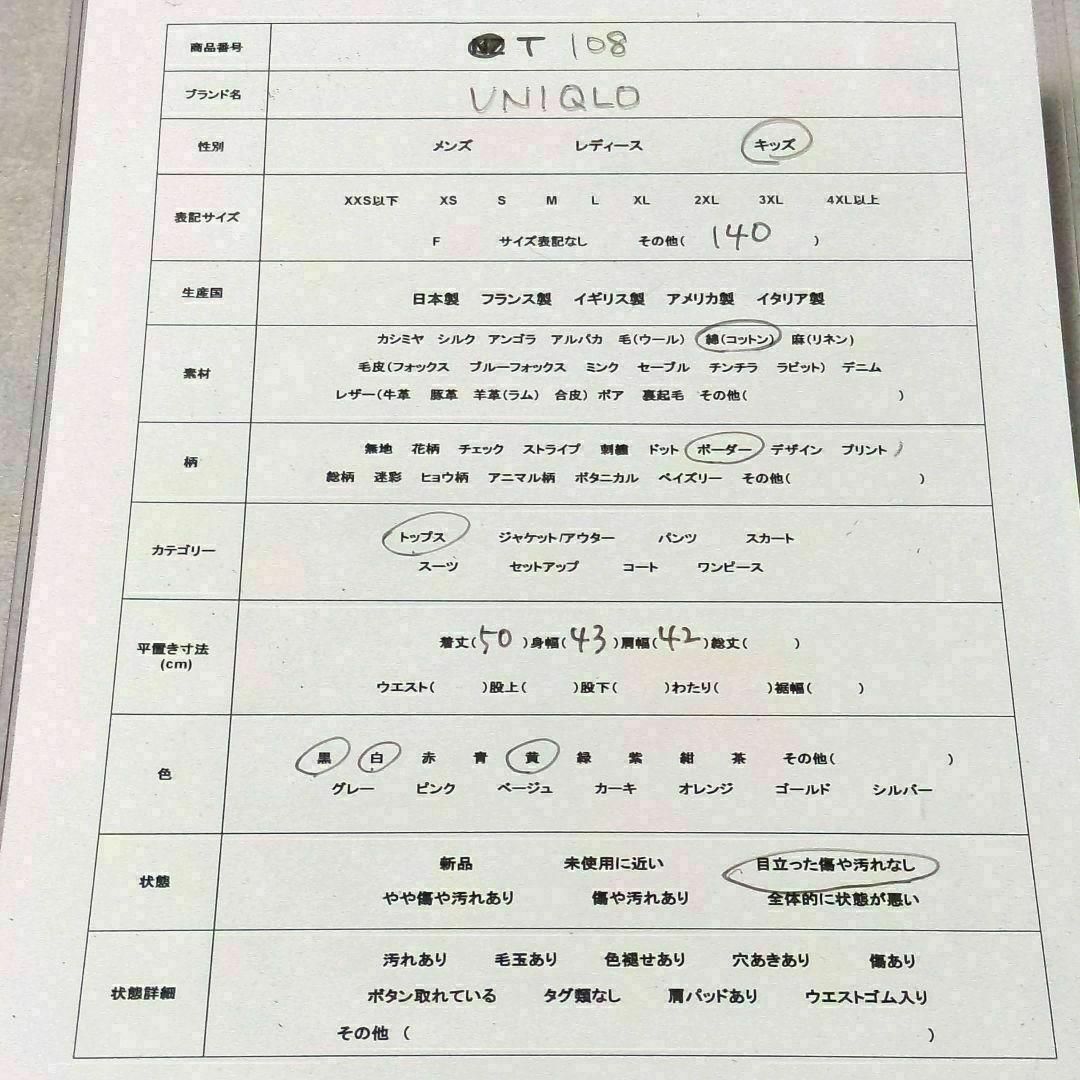 商品番号 T 108
ブランド名 UNIQLO
性別 メンズ レディース キッズ
表記サイズ XXS以下 XS S M L XL 2XL 3XL 4XL以上
F サイズ表記なし その他( 140 )
生産国 日本製 フランス製 イギリス製 アメリカ製 イタリア製
素材 カシミヤ シルク アンゴラ アルパカ 毛(ウール) 綿(コットン) 麻(リネン)
毛皮(フォックス ブルーフォックス ミンク セーブル チンチラ ラビット) デニム
レザー(牛革 豚革 羊革(ラム) 合皮) ボア 裏起毛 その他( )
柄 無地 花柄 チェック ストライプ 刺繍 ドット ボーダー デザイン プリント
総柄 迷彩 ヒョウ柄 アニマル柄 ボタニカル ペイズリー その他( )
カテゴリー トップス ジャケット/アウター パンツ スカート
スーツ セットアップ コート ワンピース
平置き寸法
(cm)
着丈(50)身幅(43)肩幅(42)総丈( )
ウエスト( )股上( )股下( )わたり( )裾幅( )
色 黒 白 赤 青 黄 緑 紫 紺 茶 その他( )
グレー ピンク ベージュ カーキ オレンジ ゴールド シルバー
状態 新品 未使用に近い 目立った傷や汚れなし
やや傷や汚れあり 傷や汚れあり 全体的に状態が悪い
状態詳細 汚れあり 毛玉あり 色褪せあり 穴あきあり 傷あり
ボタン取れている タグ類なし 肩パッドあり ウエストゴム入り
その他 ( )